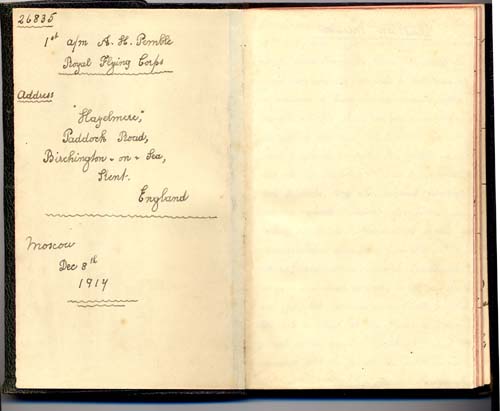 26835
1st a/m A. H. Pemble
Royal Flying Corps
Address
"Hazelmere,"
Paddock Road,
Birchington - on - Sea,
Kent.
England
Moscow
Dec 8th
1917